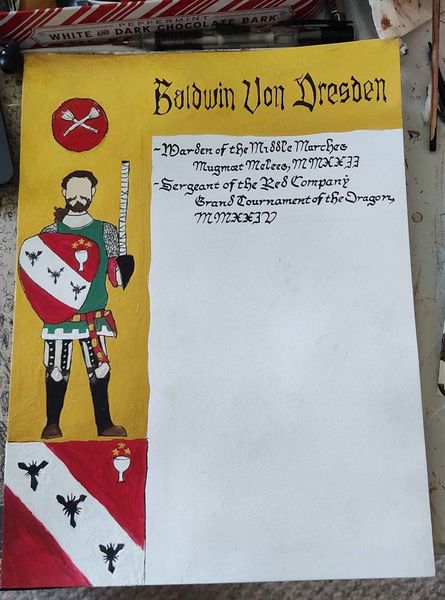 PEPPERMINT
WHITE AND DARK CHOCOLATE BARK
Baldwin Von Dresden
-Warden of the Middle Marches
Mugmœt Melees, MMXXII
-Sergeant of the Red Company
Grand Tournament of the Dragon,
MMXXIV